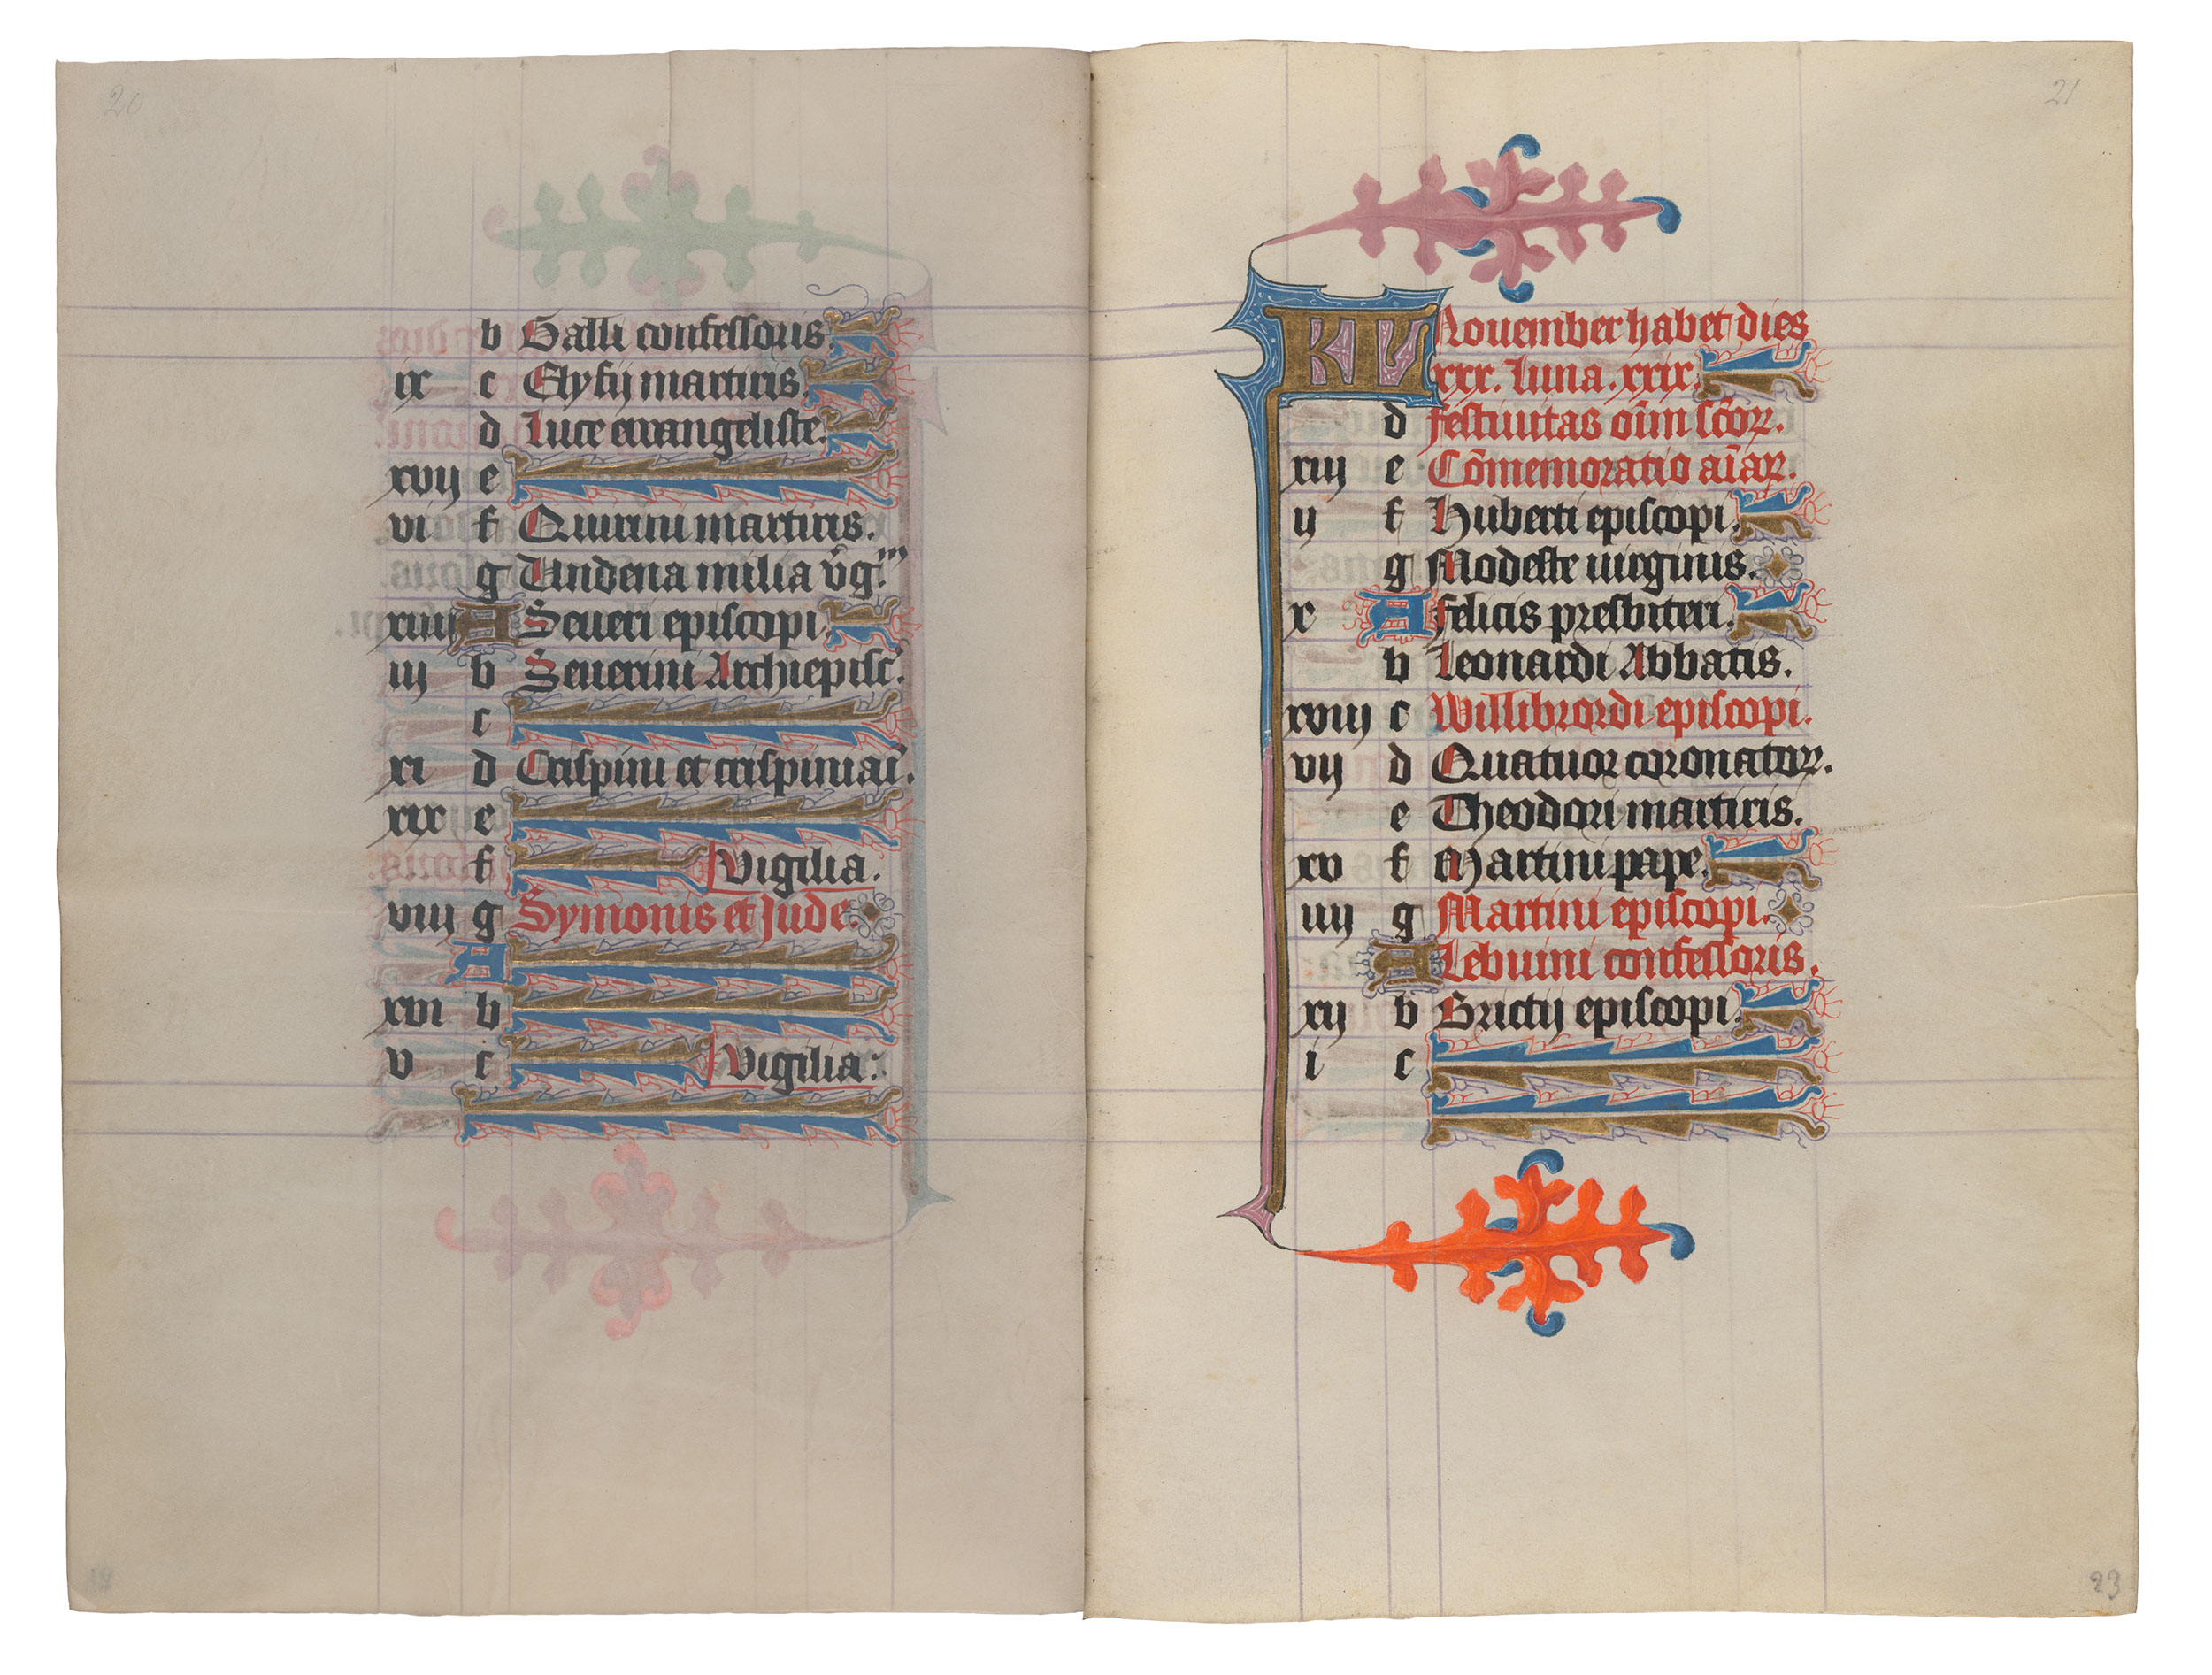 20
b Galli confessoris.
ix c Elyfij martiris.
d Luce ewangeliste.
xvij e
vi f Quirini martiris.
g Undena milia v̄g.
xiiij A Seueri episcopi.
iij b Seuerini Archiepisc̄.
c
xi d Crispini et crispiniani̅.
xix e
f Vigilia.
viij g Symonis et Jude.
A
xvi b
v c Vigilia:
21
KL Nouember habet dies
xxx. Luna. xxix.
d Festiuitas oīm sc̄oꝝ.
xiij e Cōmemoratio aīaꝝ.
ij f Huberti episcopi.
g Modeste uirginis.
x A Felicis presbiteri.
b Leonardi Abbatis.
xviij c Willibrordi episcopi.
vij d Quatuor coronatoꝝ.
e Theodori martiris.
xv f Martini pape.
iiij g Martini episcopi.
A Lebuini confessoris.
xij b Brictij episcopi.
i c
23